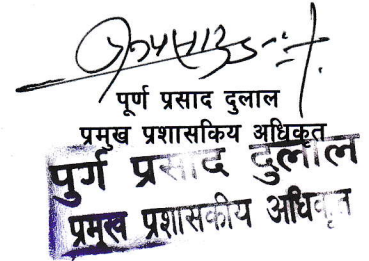 पूर्ण प्रसाद दुलाल
प्रमुख प्रशासकिय अधिकृत
पुर्ग प्रसाद दुलाल
प्रमुख प्रशासकीय अधिकृत